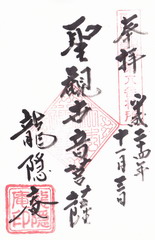 奉拝
平成二十四年
十一月三日
聖観世音菩薩
龍隠庵